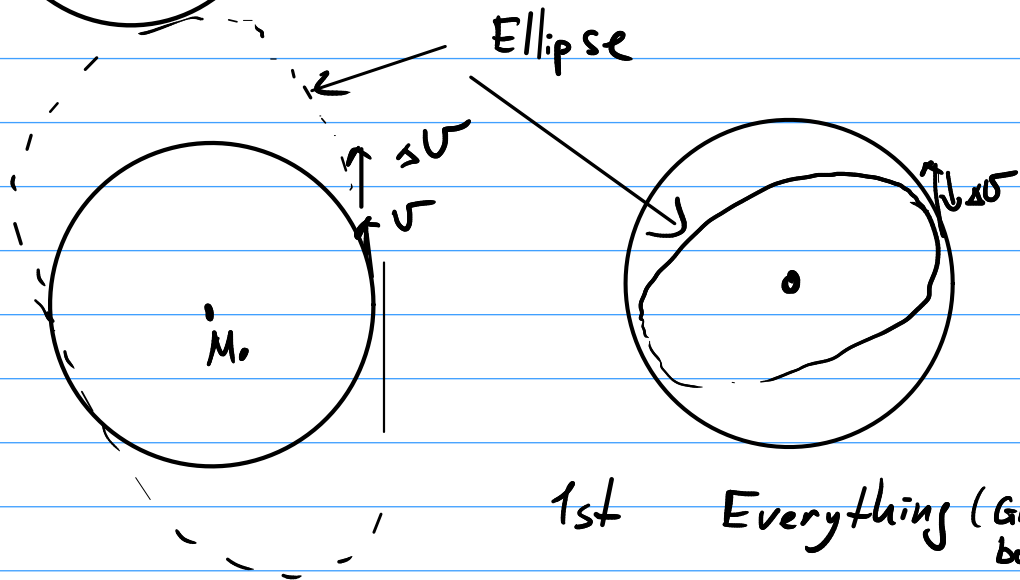 Ellipse
Δv
v
Δv
M₀
1st Everything (G
b